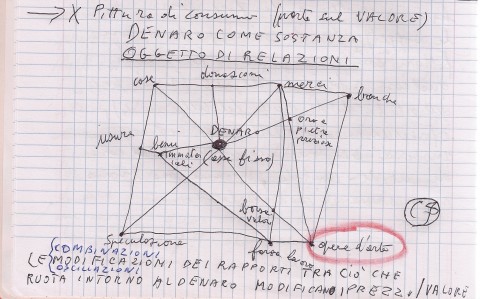 → X Pittura di consumo (parte sul VALORE)
DENARO COME SOSTANZA
OGGETTO DI RELAZIONI
cose
merci
banche
oro e
pietre
preziose
DENARO
usura
beni
immateriali
(asse fisso)
borsa
valori
C$
speculazione
forza lavoro
opere d'arte
COMBINAZIONI
(E) MODIFICAZIONI DEI RAPPORTI TRA CIÒ CHE
OSCILLAZIONI
RUOTA INTORNO AL DENARO MODIFICANO I PREZZI/VALORE